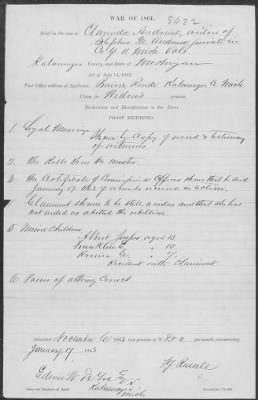 WAR OF 1861.
8622
Brief in the case of Claranda Andrews, widow of
Stephen W. Andrews private in
Co. G 11 Mich Vols
Kalamazoo County, and State of Michigan
Act of July 14, 1862.
Post Office address of Applicant, Prairie Ronde Kalamazoo Co. Mich.
Claim for Widow's
Declaration and Identification in due Form.
PROOF EXHIBITED:
1. Legal Marriage
Shown by Copy of record & testimony
of witnesses
2. The Rolls show the muster
3. The Certificate of Commanding Officer shows that he died
January 17. 1863 of wounds received in action.
4. Claimant shows to be still a widow and that she has
not aided or abetted the rebellion.
5. Minor Children
Albert aged 13
Franklin " 10
" 7
Resident with Claimant
6. Form of attorney Correct
Admitted November 6, 1863 to a pension of $8.00 per month, commencing
January 17 1863
Edwin W. De Yoe Esq
Kalamazoo
Mich
Name and Residence of Agent.